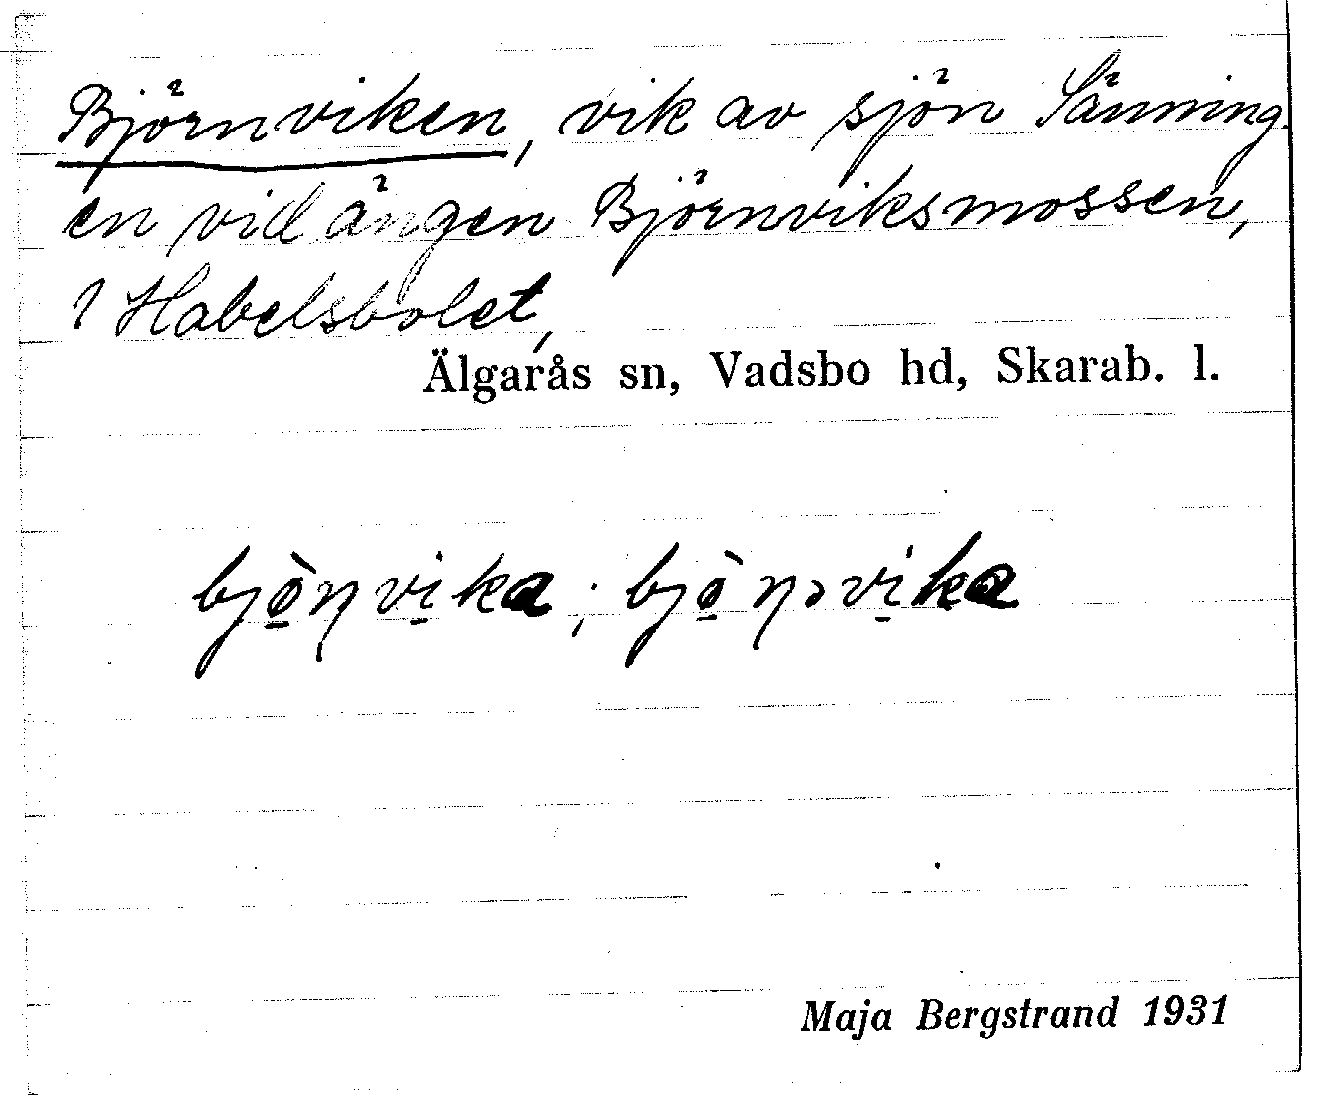 Björnviken, vik av sjön Sänning-
en vid ängen Björnviksmossen,
1 Habelsbolet,
Älgarås sn, Vadsbo hd, Skarab. l.
bjö̀ṇvi̱ka; bjö̀ṇəvi̱ka
Maja Bergstrand 1931